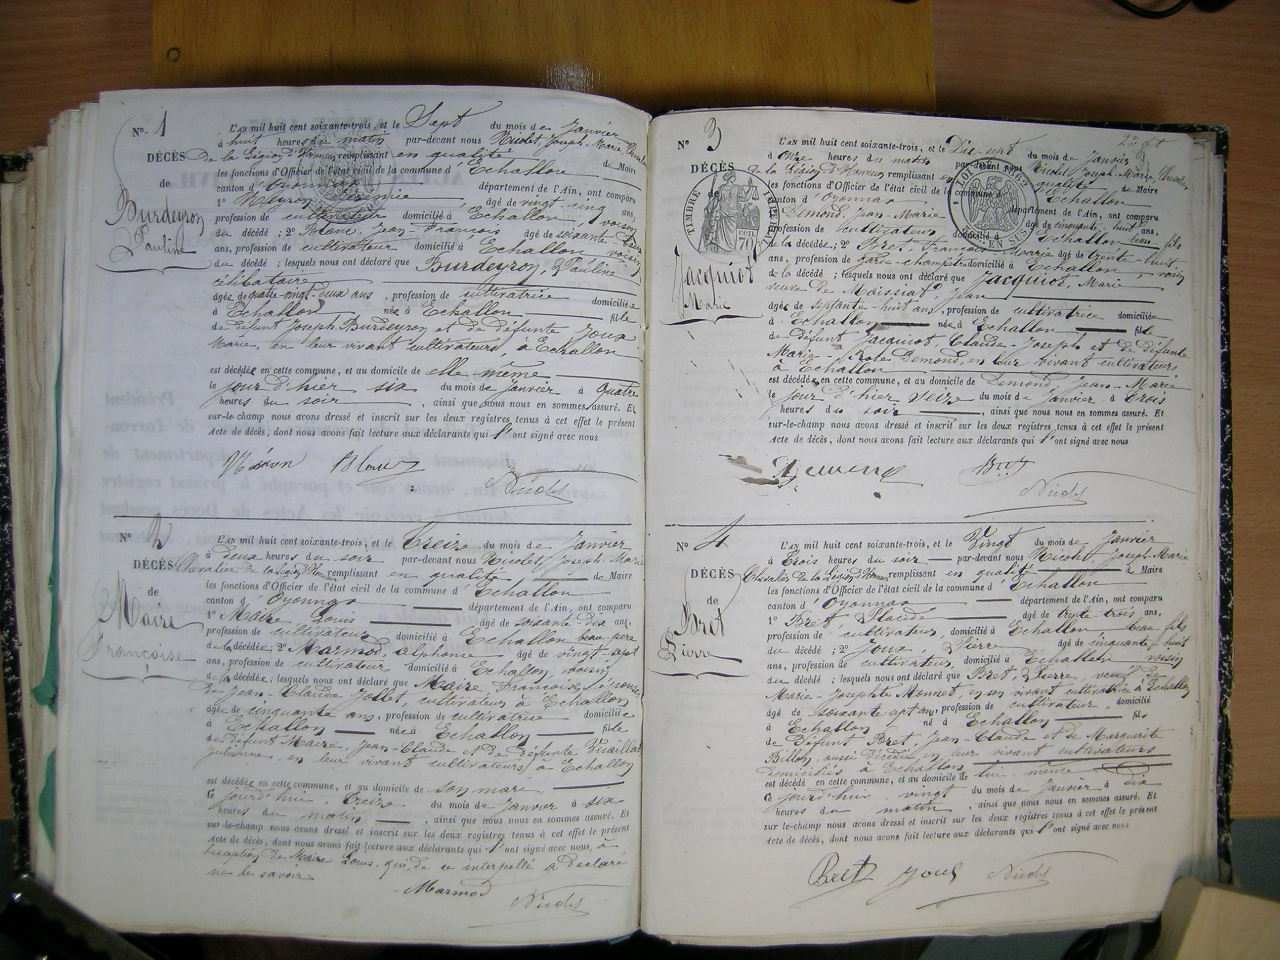 N° 1
DÉCÈS
de
Burdeyron
Pauline
L'an mil huit cent soixante-trois, et le Sept du mois de Janvier
à huit heures du matin par-devant nous Nicolet, Joseph-Marie Chevalier
de la Légion d'Honneur remplissant en qualité de Maire
les fonctions d'Officier de l'état civil de la commune d'Echallon
canton d'Oyonnax département de l'Ain, ont comparu
1° Jérémie âgé de vingt cinq ans,
profession de cultivateur domicilié à Echallon, voisin
du décédé; 2° Blanc, Jean-François âgé de soixante deux
ans, profession de cultivateur domicilié à Echallon voisin
du décédé; lesquels nous ont déclaré que Burdeyron, Pauline
célibataire
âgée de quatre-vingt-deux ans, profession de cultivatrice domiciliée
à Echallon née à Echallon fille
de défunt Joseph Burdeyron et de défunte Joux
Marie, en leur vivant cultivateurs à Echallon
est décédée en cette commune, et au domicile de elle-même
le jour d'hier six du mois de janvier à quatre
heures du soir, ainsi que nous nous en sommes assuré. Et
sur-le-champ nous avons dressé et inscrit sur les deux registres tenus à cet effet le présent
Acte de décès, dont nous avons fait lecture aux déclarants qui l'ont signé avec nous
Blanc
Nicolet
N° 2
DÉCÈS
de
Maire
Françoise
L'an mil huit cent soixante-trois, et le Treize du mois de Janvier
à deux heures du soir par-devant nous Nicolet, Joseph-Marie
Chevalier de la Légion d'Hon remplissant en qualité de Maire
les fonctions d'Officier de l'état civil de la commune d'Echallon
canton d'Oyonnax département de l'Ain, ont comparu
1° Maire Louis âgé de soixante-dix ans,
profession de cultivateur domicilié à Echallon beau-père
de la décédée; 2° Marmod, Alphonse âgé de vingt sept
ans, profession de cultivateur domicilié à Echallon, voisin
de la décédée; lesquels nous ont déclaré que Maire, Françoise, épouse
de Jean-Claude Jollet, cultivateur à Echallon
âgée de cinquante ans, profession de cultivatrice domiciliée
à Echallon née à Echallon fille
de défunt Maire, Jean-Claude et de défunte
Julienne, en leur vivant cultivateurs à Echallon
est décédée en cette commune, et au domicile de son mari
Ce jourd'hui, treize du mois de janvier à six
heures du matin, ainsi que nous nous en sommes assuré. Et
sur-le-champ nous avons dressé et inscrit sur les deux registres tenus à cet effet le présent
Acte de décès, dont nous avons fait lecture aux déclarants qui l'ont signé avec nous, à
l'exception de Maire Louis, qui de ce interpellé a déclaré
ne le savoir
Marmod
Nicolet
N° 3
DÉCÈS
de
Jacquiot
Marie
TIMBRE IMPÉRIAL
70
L'an mil huit cent soixante-trois, et le Dix-sept du mois de Janvier
à Onze heures du matin par-devant nous Nicolet Joseph-Marie, Chevalier
de la Légion d'Honneur remplissant en qualité de Maire
les fonctions d'Officier de l'état civil de la commune d'Echallon
canton d'Oyonnax département de l'Ain, ont comparu
1° Démond, Jean-Marie âgé de cinquante-huit ans,
profession de cultivateur domicilié à Echallon, fils
de la décédée; 2° Bret, François Marie âgé de trente-huit
ans, profession de garde-champêtre domicilié à Echallon, voisin
de la décédé; lesquels nous ont déclaré que Jacquiot, Marie
veuve de Maissiat, Jean
âgée de septante-huit ans, profession de cultivatrice domiciliée
à Echallon née à Echallon fille
de défunt Jacquiot, Claude-Joseph et de défunte
Marie-Rose Démond, en leur vivant cultivateurs
à Echallon
est décédée en cette commune, et au domicile de Démond, Jean-Marie
le jour d'hier seize du mois de Janvier à trois
heures du soir, ainsi que nous nous en sommes assuré. Et
sur-le-champ nous avons dressé et inscrit sur les deux registres tenus à cet effet le présent
Acte de décès, dont nous avons fait lecture aux déclarants qui l'ont signé avec nous
Nicolet
N° 4
DÉCÈS
de
Bret
Pierre
L'an mil huit cent soixante-trois, et le Vingt du mois de Janvier
à Trois heures du soir par-devant nous Nicolet Joseph-Marie
Chevalier de la Légion d'Honneur remplissant en qualité de Maire
les fonctions d'Officier de l'état civil de la commune d'Echallon
canton d'Oyonnax département de l'Ain, ont comparu
1° Bret, Claude âgé de trente-trois ans,
profession de cultivateur domicilié à Echallon beau fils
du décédé; 2° Joux, Pierre âgé de cinquante-huit
ans, profession de cultivateur, domicilié à Echallon voisin
du décédé; lesquels nous ont déclaré que Bret, Pierre, veuf de
Marie-Josephte Monnet, en son vivant cultivatrice à Echallon
âgé de soixante sept ans, profession de cultivateur, domicilié
à Echallon né à Echallon fils
de défunt Bret, Jean-Claude et de Marguerite
Billon, aussi décédée en leur vivant cultivateurs
domiciliés à Echallon
est décédé en cette commune, et au domicile de lui-même
Ce jourd'hui, vingt du mois de janvier à dix
heures du matin, ainsi que nous nous en sommes assuré. Et
sur-le-champ nous avons dressé et inscrit sur les deux registres tenus à cet effet le présent
Acte de décès, dont nous avons fait lecture aux déclarants qui l'ont signé avec nous
Bret Joux Nicolet